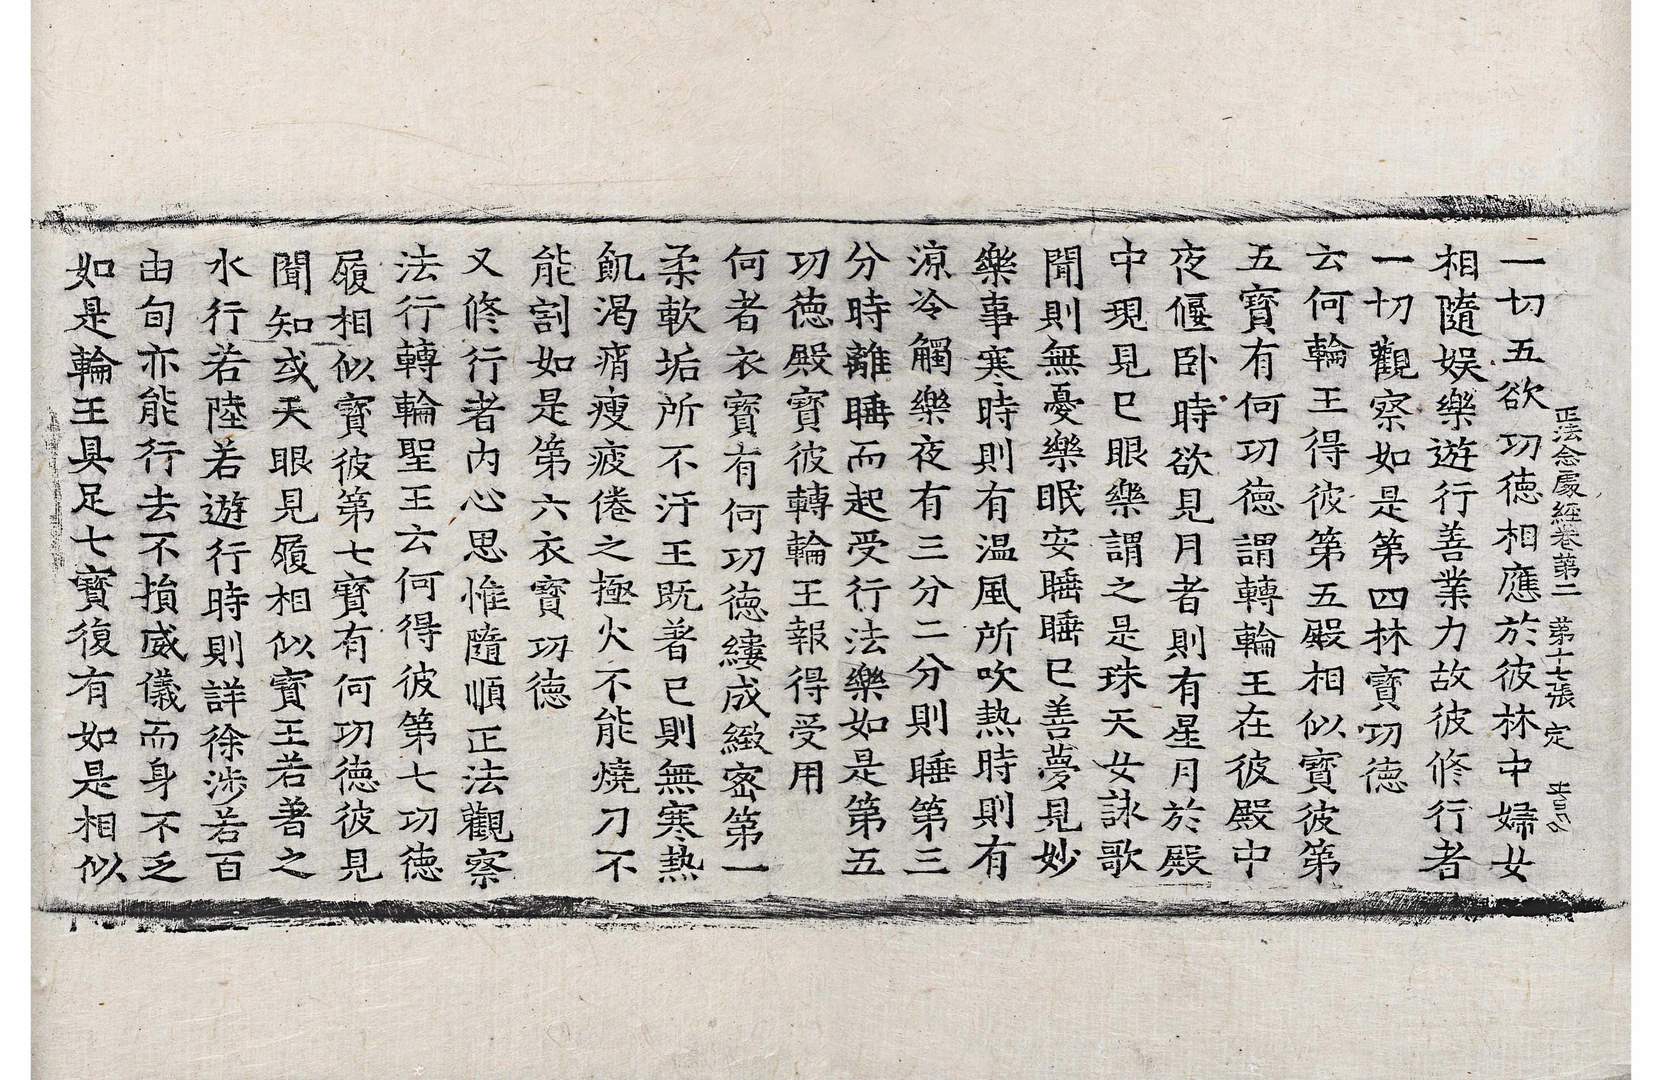 正法念處經卷第二 第十七張 定
一切五欲功德相應於彼林中婦女
相隨娛樂遊行善業力故彼修行者
一切觀察如是第四林寶功德
云何輪王得彼第五殿相似寶彼第
五寶有何功德謂轉輪王在彼殿中
夜偃卧時欲見月者則有星月於殿
中現見已眼樂謂之是珠天女詠歌
聞則無憂樂眠安睡睡已善夢見妙
樂事寒時則有溫風所吹熱時則有
涼冷觸樂夜有三分二分則睡第三
分時離睡而起受行法樂如是第五
功德殿寶彼轉輪王報得受用
何者衣寶有何功德縷成緻密第一
柔軟垢所不汙王既著已則無寒熱
飢渴痟瘦疲倦之極火不能燒刀不
能割如是第六衣寶功德
又修行者內心思惟隨順正法觀察
法行轉輪聖王云何得彼第七功德
履相似寶彼第七寶有何功德彼見
聞知或天眼見履相似寶王若著之
水行若陸若遊行時則詳徐涉若百
由旬亦能行去不損威儀而身不乏
如是輪王具足七寶復有如是相似